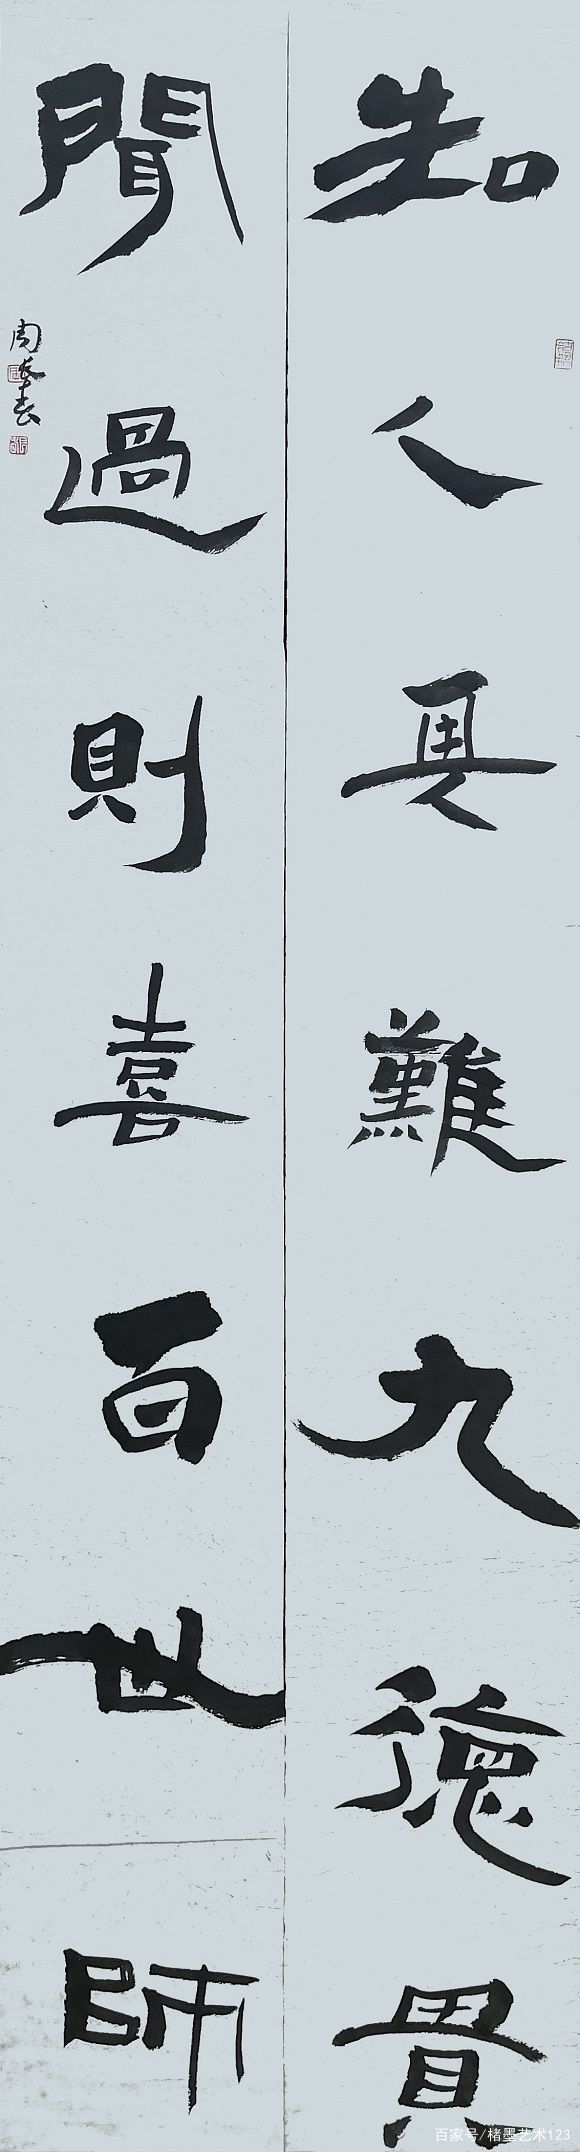 知人難九德貫
聞過則喜百世師
周
百家号/楮墨艺术123